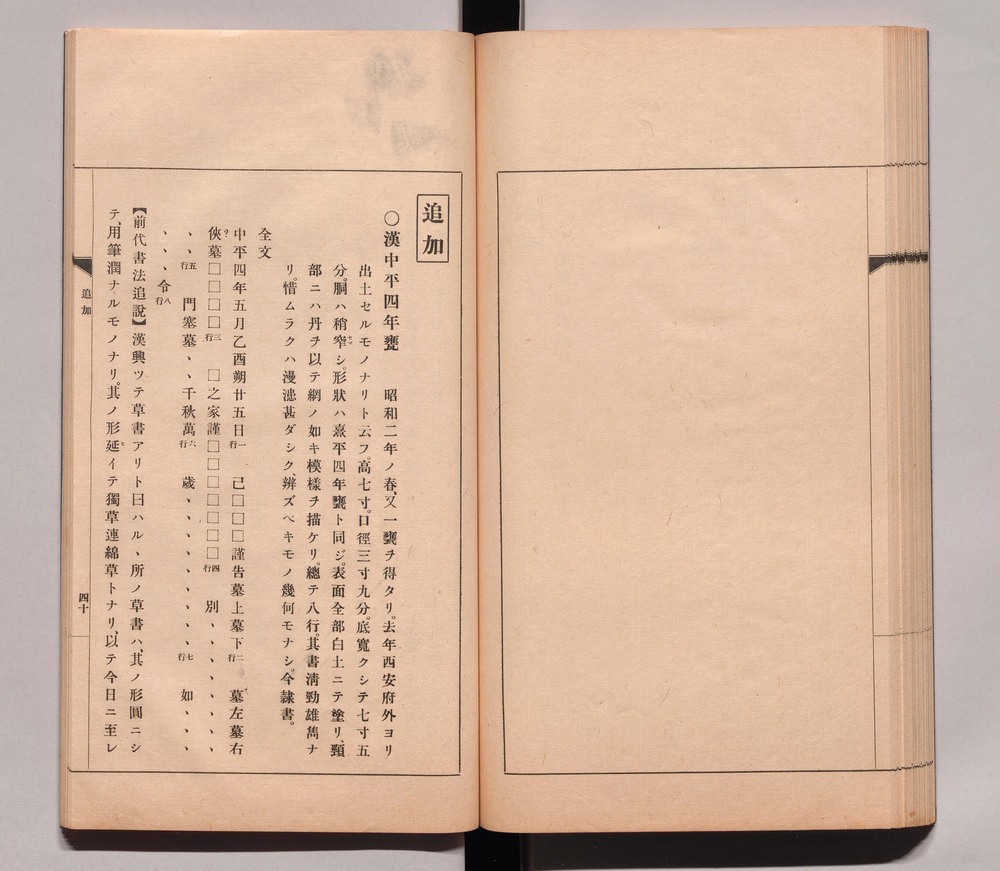 追加
〇漢中平四年甕　昭和二年ノ春、又一甕ヲ得タリ。去年西安府外ヨリ
出土セルモノナリト云フ。高七寸。口徑三寸九分。底寬クシテ七寸五
分。胴ハ稍窄シ。形狀ハ熹平四年甕ト同ジ。表面全部白土ニテ塗リ、頸
部ニハ丹ヲ以テ網ノ如キ模樣ヲ描ケリ。總テ八行。其書淸勁雄雋ナ
リ。惜ムラクハ漫漶甚ダシク、辨ズベキモノ幾何モナシ。今隸書。
全文
中平四年五月乙酉朔廿五日一行　己□□□謹告墓上墓下二行　墓左墓右
俠?墓□□□□三行　□之家謹□□□□□□□四行　別、、、、、、、、
、、五行　門塞墓、、千秋萬六行　歲、、、、、、、、、七行　如、、、
、、、令八行
【前代書法追說】漢興ツテ草書アリト曰ハル、所ノ草書ハ、其ノ形圓ニシ
テ、用筆潤ナルモノナリ。其ノ形延イテ獨草連綿草トナリ、以テ今日ニ至レ
追加
四十